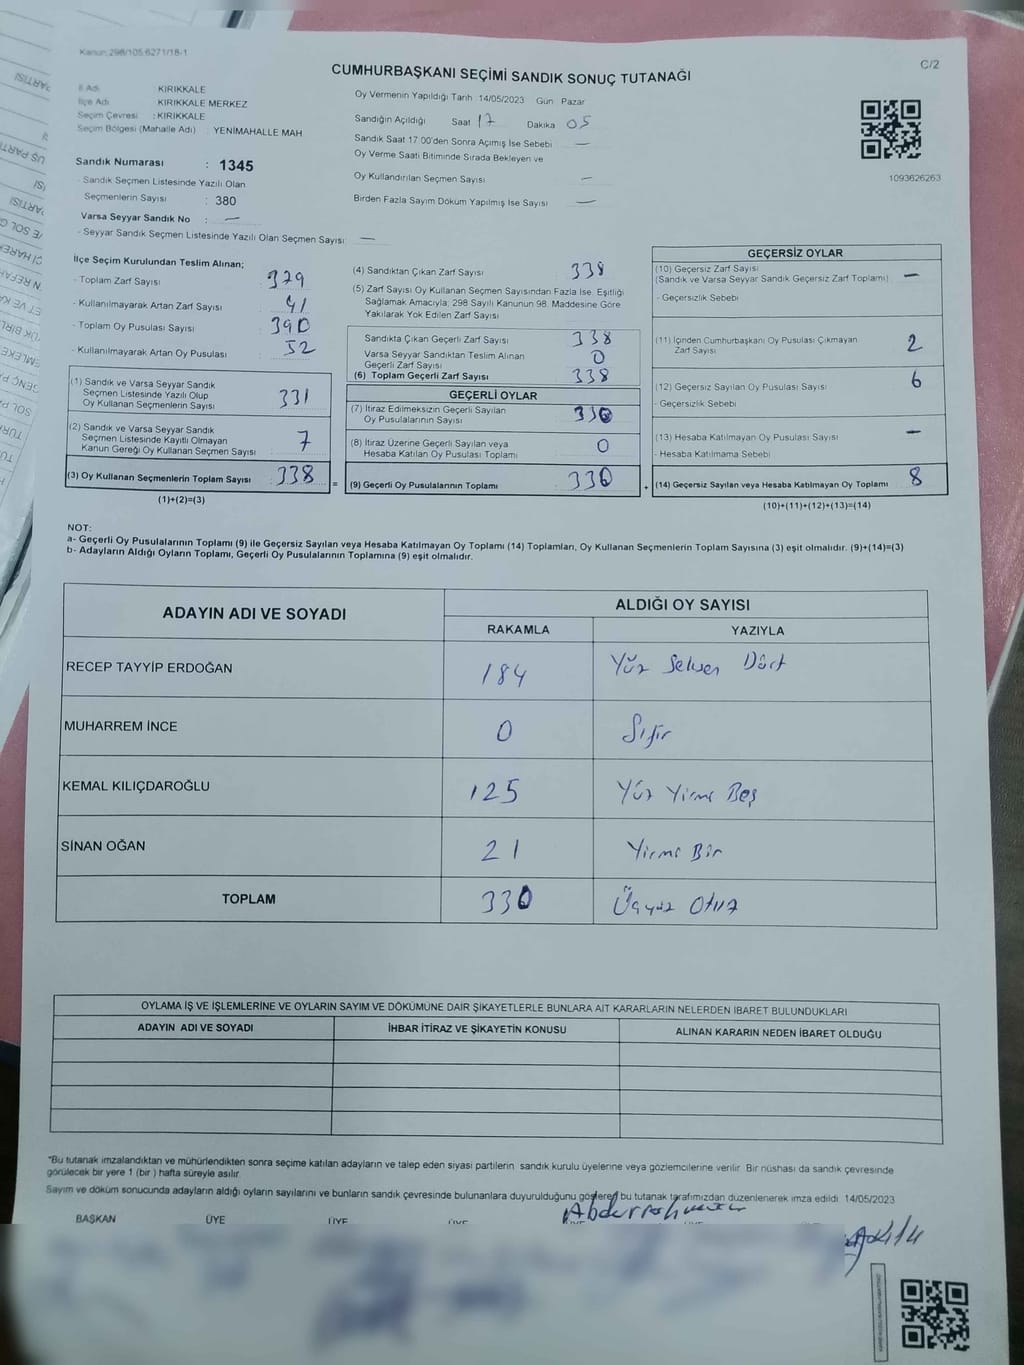 Kanun:298/105,6271/18-1
C/2
CUMHURBAŞKANI SEÇİMİ SANDIK SONUÇ TUTANAĞI
İl Adı KIRIKKALE
İlçe Adı KIRIKKALE MERKEZ
Seçim Çevresi : KIRIKKALE
Seçim Bölgesi (Mahalle Adı) : YENİMAHALLE MAH
Sandık Numarası : 1345
- Sandık Seçmen Listesinde Yazılı Olan
Seçmenlerin Sayısı : 380
Varsa Seyyar Sandık No : —
- Seyyar Sandık Seçmen Listesinde Yazılı Olan Seçmen Sayısı: —
Oy Vermenin Yapıldığı Tarih 14/05/2023 Gün Pazar
Sandığın Açıldığı Saat 17 Dakika 05
Sandık Saat 17:00'den Sonra Açımış İse Sebebi —
Oy Verme Saati Bitiminde Sırada Bekleyen ve
Oy Kullandırılan Seçmen Sayısı —
Birden Fazla Sayım Döküm Yapılmış İse Sayısı —
1093626263
İlçe Seçim Kurulundan Teslim Alınan;
- Toplam Zarf Sayısı : 379
- Kullanılmayarak Artan Zarf Sayısı : 41
- Toplam Oy Pusulası Sayısı : 390
- Kullanılmayarak Artan Oy Pusulası : 52
(1) Sandık ve Varsa Seyyar Sandık
Seçmen Listesinde Yazılı Olup
Oy Kullanan Seçmenlerin Sayısı : 331
(2) Sandık ve Varsa Seyyar Sandık
Seçmen Listesinde Kayıtlı Olmayan
Kanun Gereği Oy Kullanan Seçmen Sayısı : 7
(3) Oy Kullanan Seçmenlerin Toplam Sayısı : 338
(1)+(2)=(3)
=
(4) Sandıktan Çıkan Zarf Sayısı 338
(5) Zarf Sayısı Oy Kullanan Seçmen Sayısından Fazla İse, Eşitliği
Sağlamak Amacıyla; 298 Sayılı Kanunun 98. Maddesine Göre
Yakılarak Yok Edilen Zarf Sayısı
Sandıkta Çıkan Geçerli Zarf Sayısı 338
Varsa Seyyar Sandıktan Teslim Alınan
Geçerli Zarf Sayısı 0
(6) Toplam Geçerli Zarf Sayısı 338
GEÇERLİ OYLAR
(7) İtiraz Edilmeksizin Geçerli Sayılan
Oy Pusulalarının Sayısı 330
(8) İtiraz Üzerine Geçerli Sayılan veya
Hesaba Katılan Oy Pusulası Toplamı 0
(9) Geçerli Oy Pusulalarının Toplamı 330
+
GEÇERSİZ OYLAR
(10) Geçersiz Zarf Sayısı
(Sandık ve Varsa Seyyar Sandık Geçersiz Zarf Toplamı) —
- Geçersizlik Sebebi
(11) İçinden Cumhurbaşkanı Oy Pusulası Çıkmayan
Zarf Sayısı 2
(12) Geçersiz Sayılan Oy Pusulası Sayısı 6
- Geçersizlik Sebebi
(13) Hesaba Katılmayan Oy Pusulası Sayısı —
- Hesaba Katılmama Sebebi
(14) Geçersiz Sayılan veya Hesaba Katılmayan Oy Toplamı 8
(10)+(11)+(12)+(13)=(14)
NOT:
a- Geçerli Oy Pusulalarının Toplamı (9) ile Geçersiz Sayılan veya Hesaba Katılmayan Oy Toplamı (14) Toplamları, Oy Kullanan Seçmenlerin Toplam Sayısına (3) eşit olmalıdır. (9)+(14)=(3)
b- Adayların Aldığı Oyların Toplamı, Geçerli Oy Pusulalarının Toplamına (9) eşit olmalıdır.
ADAYIN ADI VE SOYADI
ALDIĞI OY SAYISI
RAKAMLA YAZIYLA
RECEP TAYYİP ERDOĞAN 184 Yüz Seksen Dört
MUHARREM İNCE 0 Sıfır
KEMAL KILIÇDAROĞLU 125 Yüz Yirmi Beş
SİNAN OĞAN 21 Yirmi Bir
TOPLAM 330 Üçyüz Otuz
OYLAMA İŞ VE İŞLEMLERİNE VE OYLARIN SAYIM VE DÖKÜMÜNE DAİR ŞİKAYETLERLE BUNLARA AİT KARARLARIN NELERDEN İBARET BULUNDUKLARI
ADAYIN ADI VE SOYADI İHBAR İTİRAZ VE ŞİKAYETİN KONUSU ALINAN KARARIN NEDEN İBARET OLDUĞU
"Bu tutanak imzalandıktan ve mühürlendikten sonra seçime katılan adayların ve talep eden siyasi partilerin sandık kurulu üyelerine veya gözlemcilerine verilir. Bir nüshası da sandık çevresinde
görülecek bir yere 1 (bir ) hafta süreyle asılır.
Sayım ve döküm sonucunda adayların aldığı oyların sayılarını ve bunların sandık çevresinde bulunanlara duyurulduğunu gösteren bu tutanak tarafımızdan düzenlenerek imza edildi 14/05/2023
Abdurrahman
BAŞKAN ÜYE ÜYE ÜYE